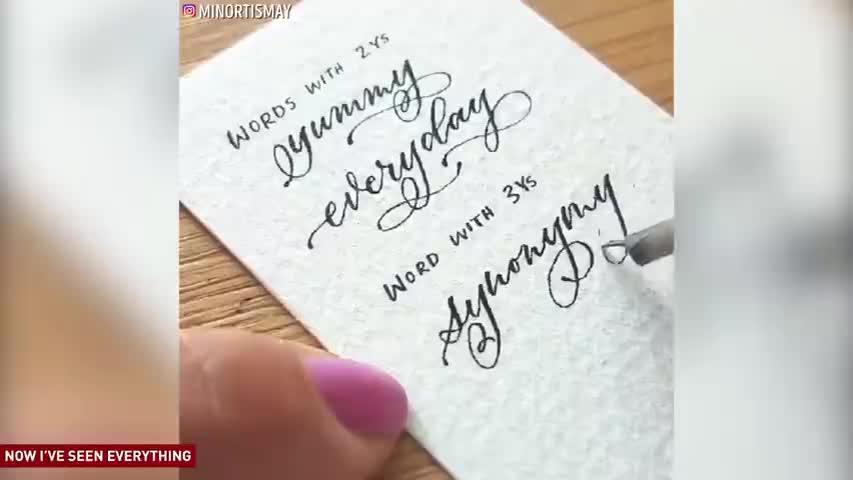 MINORTISMAY
WORDS WITH 2 YS
yummy
everyday
WORD WITH 3 YS
synonymy
NOW I'VE SEEN EVERYTHING